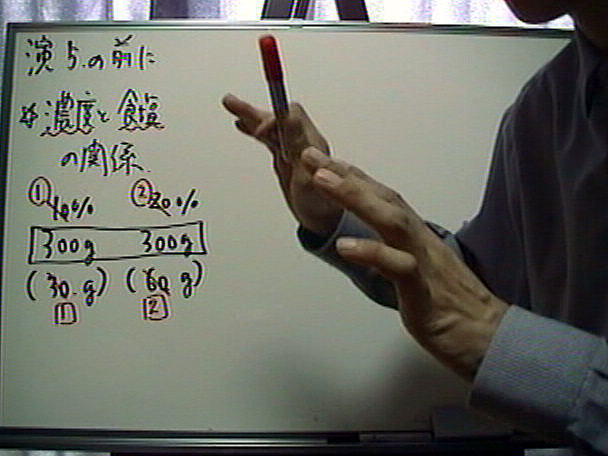 演5.の前に
*濃度と食塩
の関係.
①10% ②20%
300g 300g
(30.g) (60.g)
1 2